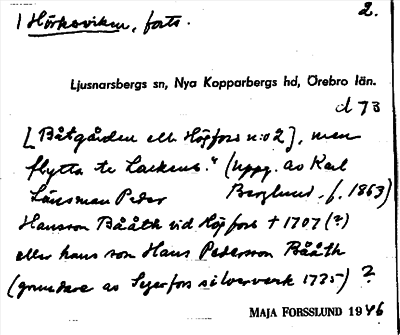 1 Hörkeviken, forts.
2.
Ljusnarsbergs sn, Nya Kopparbergs hd, Örebro län.
d 73
[Båtgården ell. Högfors n:o 2], men
flytta te Lackens." (Uppg. av Karl
Länsman Peder Berglund, f. 1863)
Hansson Bååth vid Högfors † 1707 (?)
eller hans son Hans Pedersson Bååth
(grundare av Segerfors silververk 1725) ?
MAJA FORSSLUND 1946